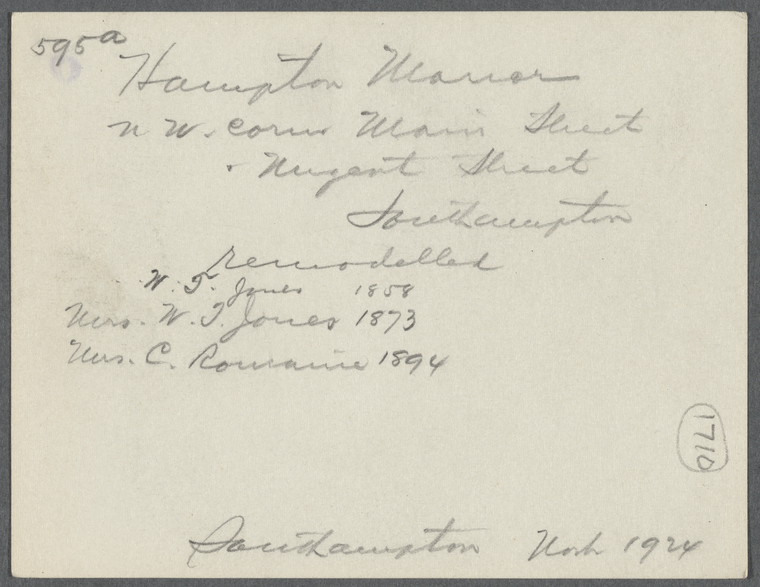 595a
Hampton Manor
N W. corner Main Street
+ Nugent Street
Southampton
remodelled
W. F. Jones 1858
Mrs. W. F. Jones 1873
Mrs. C. Romaine 1894
1710
Southampton 1924